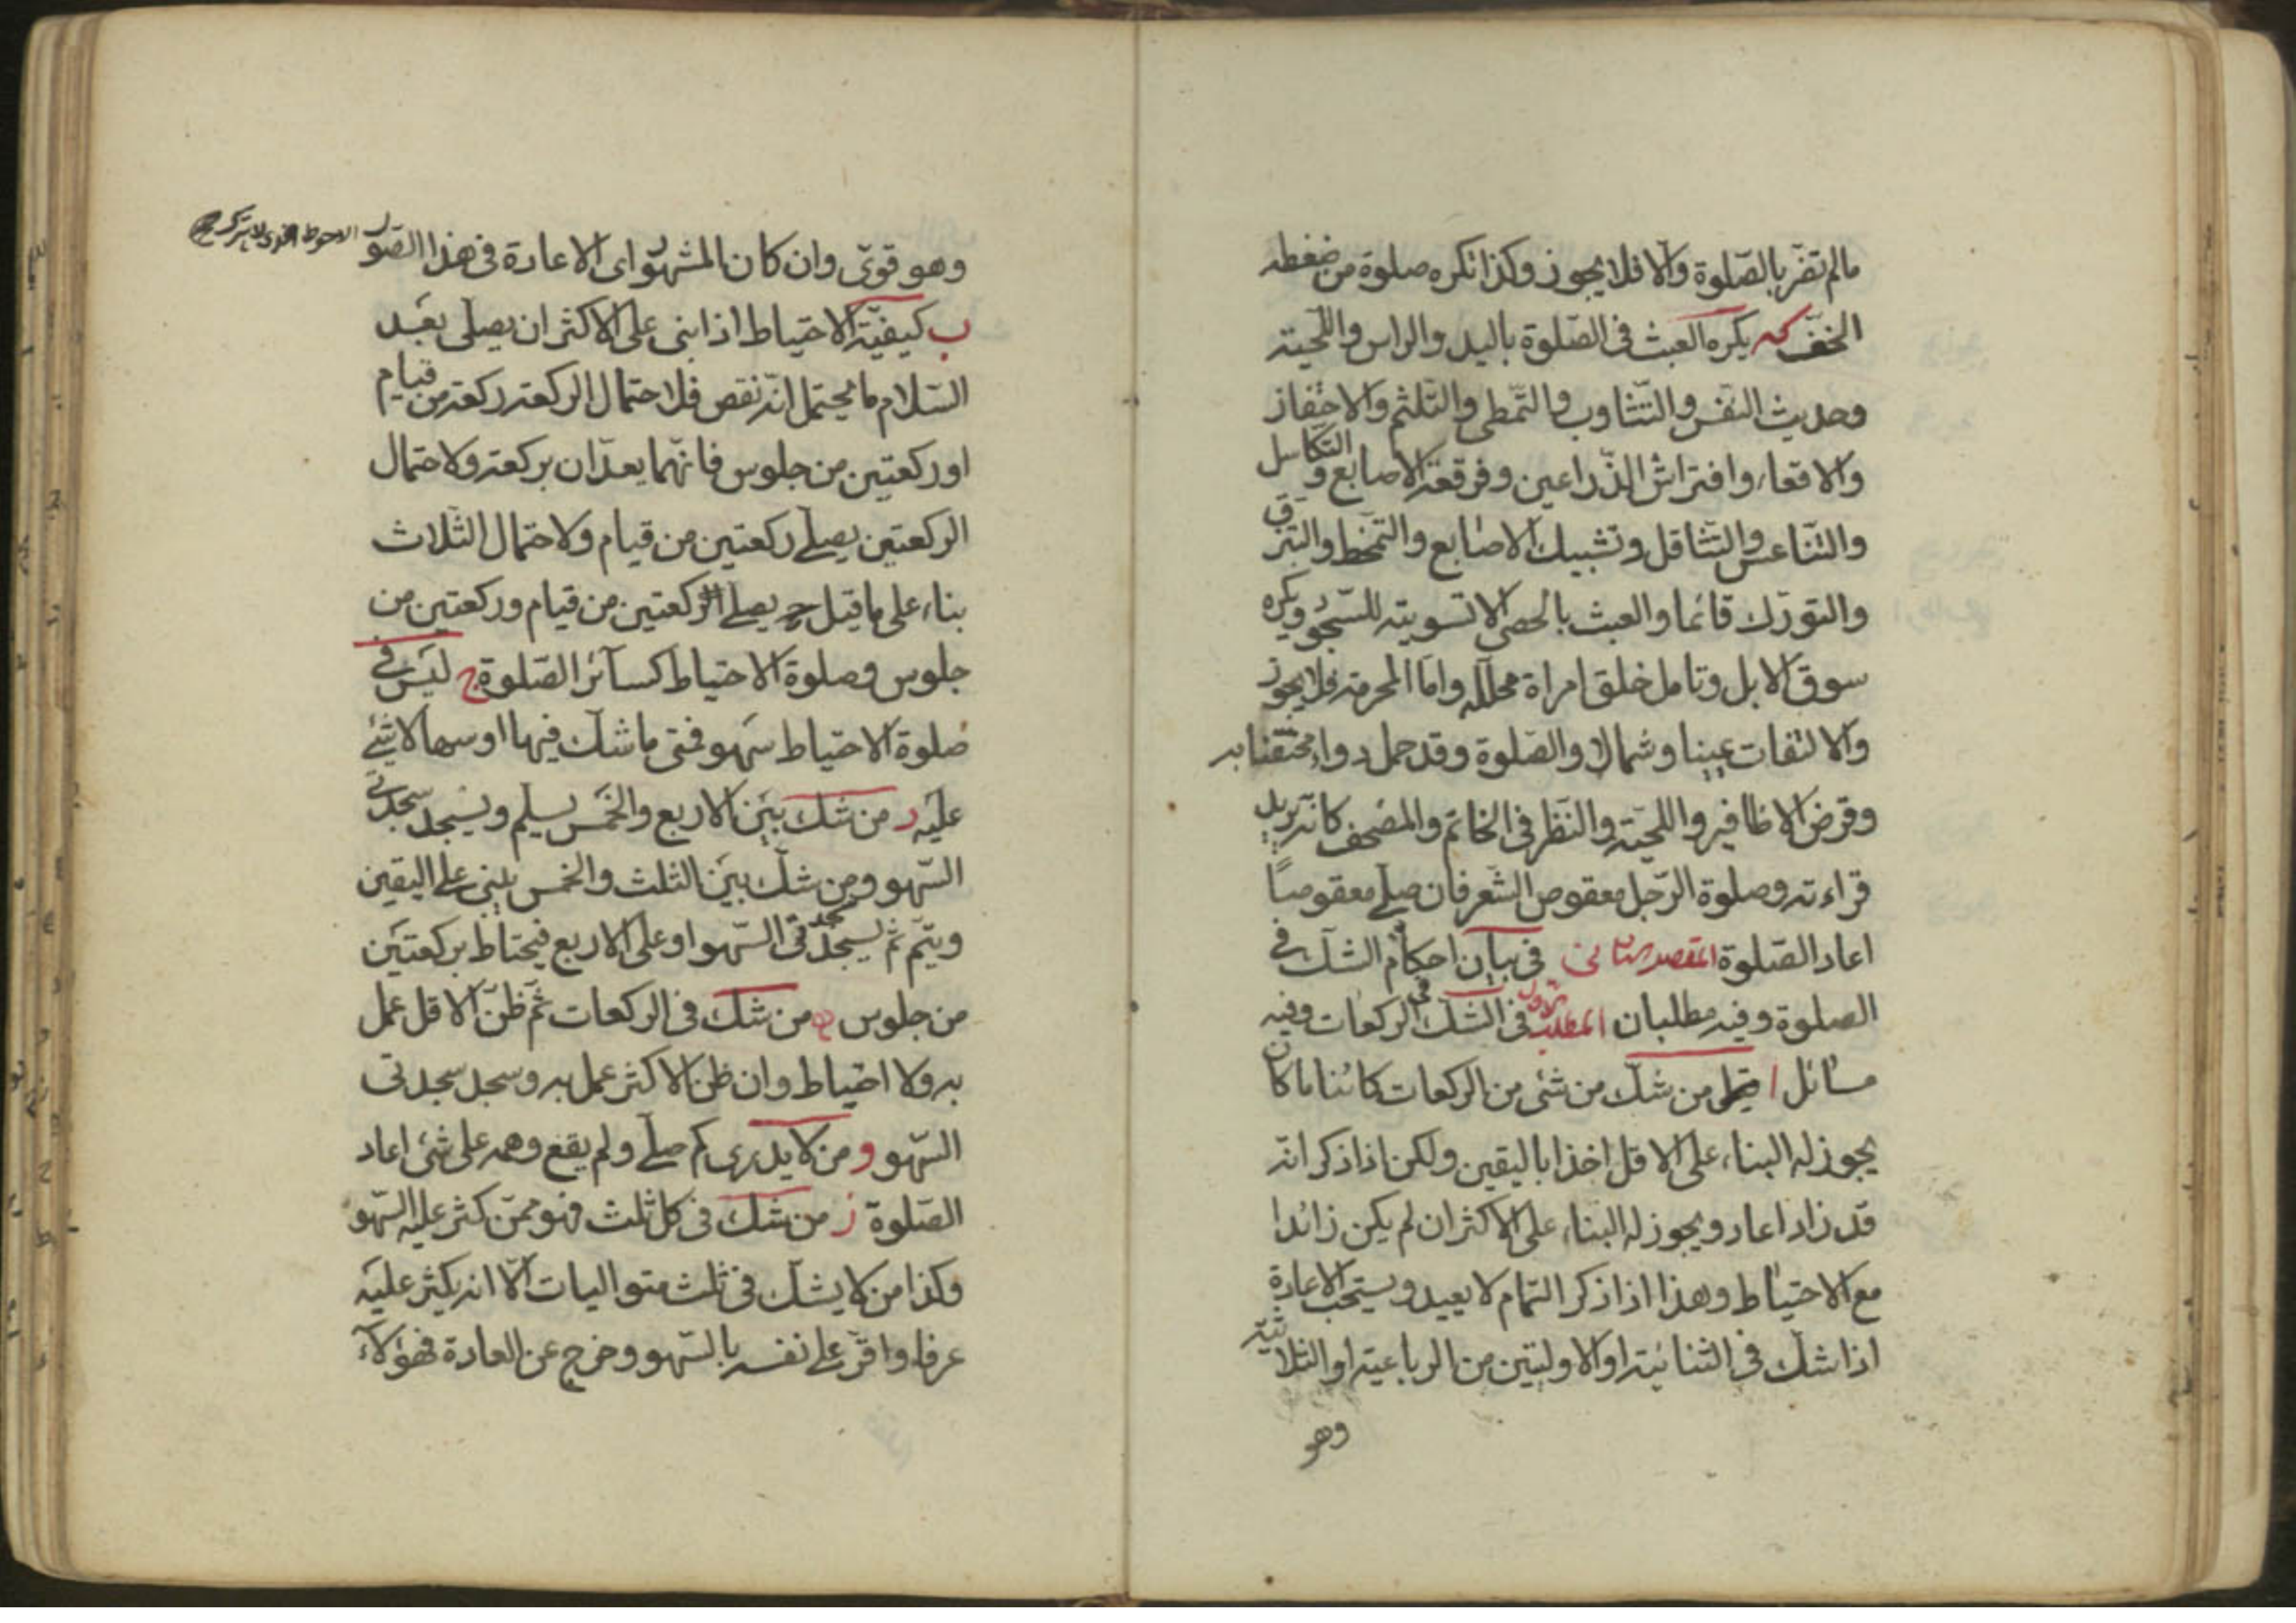 مالم تضر بالصّلوة والّا فلا يجوز وكذا تكره صلوة من ضغطه
الخفّ كه يكره العبث فى الصّلوة باليد والراس واللّحيته
وحديث النفس والتّثاوب والتّمطى والتّلثم والاحتفاز
والاقعاء وافتراش الذّراعين وفرقعة الاصابع والتكاسل
والتّناعس والتّثاقل وتشبيك الاصابع والتمخط والتبزق
والتورّك قائما والعبث بالحصى الا تسويته للسّجود ويكره
سوق الابل وتامل خلق امراة محلّله وامّا المحرمة فلا يجوز
والالتفات يمينا وشمالا والصّلوة وقد حمل دواء محتقنا به
وقرض الاظافير واللحيّة والنّظر فى الخاتم والمصحف كانّه يريد
قراءته وصلوة الرّجل معقوص الشّعر فان صلّے معقوصًا
اعاد الصّلوة المقصد الثانى فى بيان احكام الشكّ فى
الصلوة وفيه مطلبان المطلب الاول فى الشكّ فى الركعات وفيه
مسائل ا من شكّ من شئى من الركعات كائنا ما كان
يجوز له البناء على الاقل اخذا باليقين ولكن اذا ذكر انّه
قد زاد اعاد ويجوز له البناء على الاكثر ان لم يكن زائدا
مع الاحتياط وهذا اذا ذكر التمام لا يعيد ويستحب الاعادة
اذا شكّ فى الثنائيّة او الاوليتين من الرباعية او الثلاثيّة
وهو
وهو قوىّ وان كان المشهّور اى الاعادة فى هذا الصّور الاحوط الذى لا يترك
ب كيفيّة الاحتياط اذا بنى على الاكثر ان يصلّى بعد
السّلام ما يحتمل انّه نقص فلاحتمال الركعة ركعة من قيام
او ركعتين من جلوس فانّهما يعدّان بركعة ولاحتمال
الركعتين يصلّے ركعتين من قيام ولاحتمال الثّلاث
بناء على ما قيل ح يصلّے الركعتين من قيام وركعتين من
جلوس وصلوة الاحتياط كسائر الصّلوة ج ليس فى
صلوة الاحتياط سهو فمتى ما شكّ فيها او سها لا شئے
عليه د من شكّ بين الاربع والخمس يسلّم ويسجد سجدتى
السّهو ومن شكّ بين الثلث والخمس يبنى على اليقين
ويتّم ثم يسجد سجدتى السّهو او على الاربع فيحتاط بركعتين
من جلوس ه من شكّ فى الركعات ثمّ ظنّ الاقل عمل
به ولا احتياط وان ظن الاكثر عمل به وسجد سجدتى
السّهو و من لا يدرى كم صلّے ولم يقع وهمه على شئى اعاد
الصّلوة ز من شكّ فى كل ثلث فهو ممّن كثر عليه السّهو
وكذا من لا يشكّ فى ثلث متواليات الّا انه يكثر عليه
عرفا واقرّ على نفسه بالسّهو وخرج عن العادة فهؤلآء